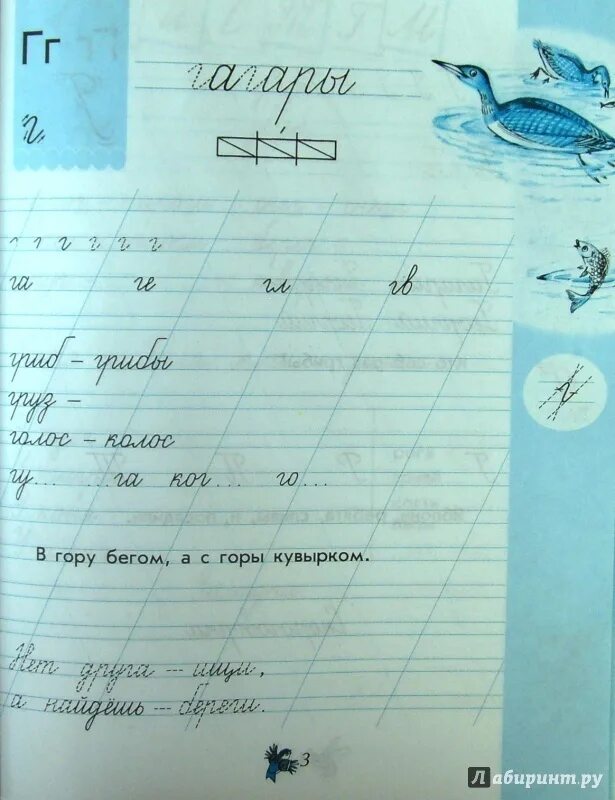 Гг
гагары
г
г г г г г г
га ге гл гв
гриб – грибы
груз –
голос – колос
гу... ...га ког... го...
В гору бегом, а с горы кувырком.
г
Нет друга – ищи,
а найдёшь – береги.
3
Лабиринт.ру